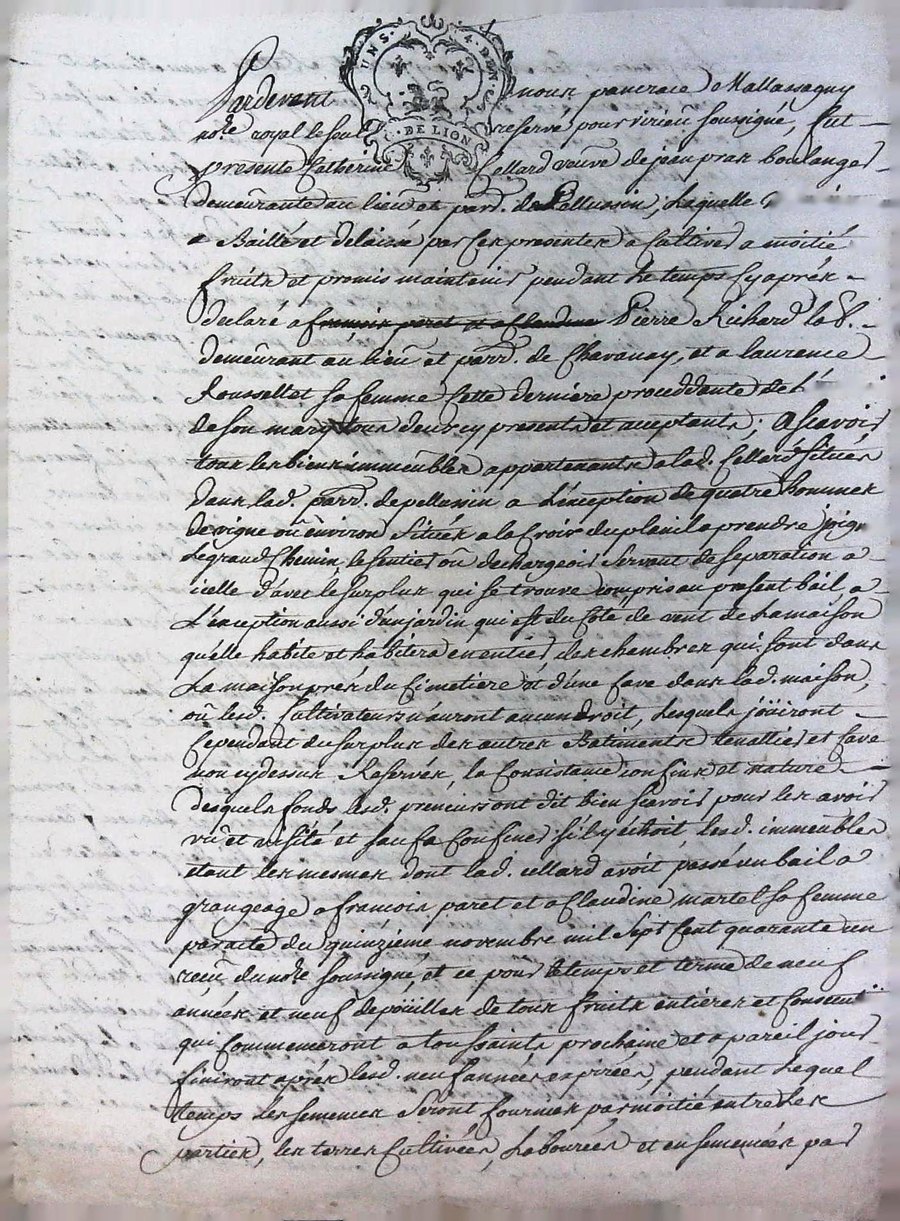 UN S. 4 DEN.
DE LION
Pardevant nous pancrace Mallassagny
no.re royal le seul reservé pour virieu soussigné, fut
presente Catherine Cellard veuve de jean prax boulanger
demeurante au lieu et parr. de Pellussin, Laquelle
a Baillé et delaissé par ces presentes a Cultiver a moitié
fruits et promis maintenir pendant le temps Cy aprés
declaré a francois paret et a Claudine Pierre Richard lab.
demeurant au lieu et parr. de Chavanay, et a laurence
Rousset sa femme Cette derniere proceddante de l'
de son mary tous deux cy presents et acceptants; a scavoir
tous les biens immeubles appartenants a lad. Cellard Situés
dans lad. parr. de pellussin a L'éxception de quatre hommes
de vigne oû environ Situés a la Croix du planil a prendre joig.
Le grand Chemin, le sentier oû dechargeoir Servant de separation a
icelle d'avec le surplus qui se trouve compris au present bail, a
L'éxception aussi d'un jardin qui est du Coté de vent de la maison
qu'elle habite et habitera en entier, des chambres qui sont dans
La maison prés du Cimetiere et d'une Cave dans lad. maison,
oû lesd. Cultivateurs n'auront aucun droit, Lesquels joüiront
Cependant du surplus des autres Batiments tenallier et Cave
non cy dessus Reservés, la Consistance confins et nature
desquels fonds lesd. preneurs ont dit bien scavoir pour les avoir
vû et visité et sauf a Confiner s'il y échoit, lesd. immeubles
etant les mesmes dont lad. cellard avoit passé un bail a
grangeage a francois paret et a Claudine martel sa femme
par acte du quinzième novembre mil Sept Cent quarante un
reçu dud. no.re soussigné, et ce pour le temps et terme de neuf
années et neuf depoüilles de tous fruits entières et Consecut..
qui Commenceront a toussaints prochaine et a pareil jour
finiront aprés lesd. neuf années expirées, pendant Lequel
temps les semences Seront fournies par moitié entre Les
parties, les terres Cultivées, Labourées et ensemencées par